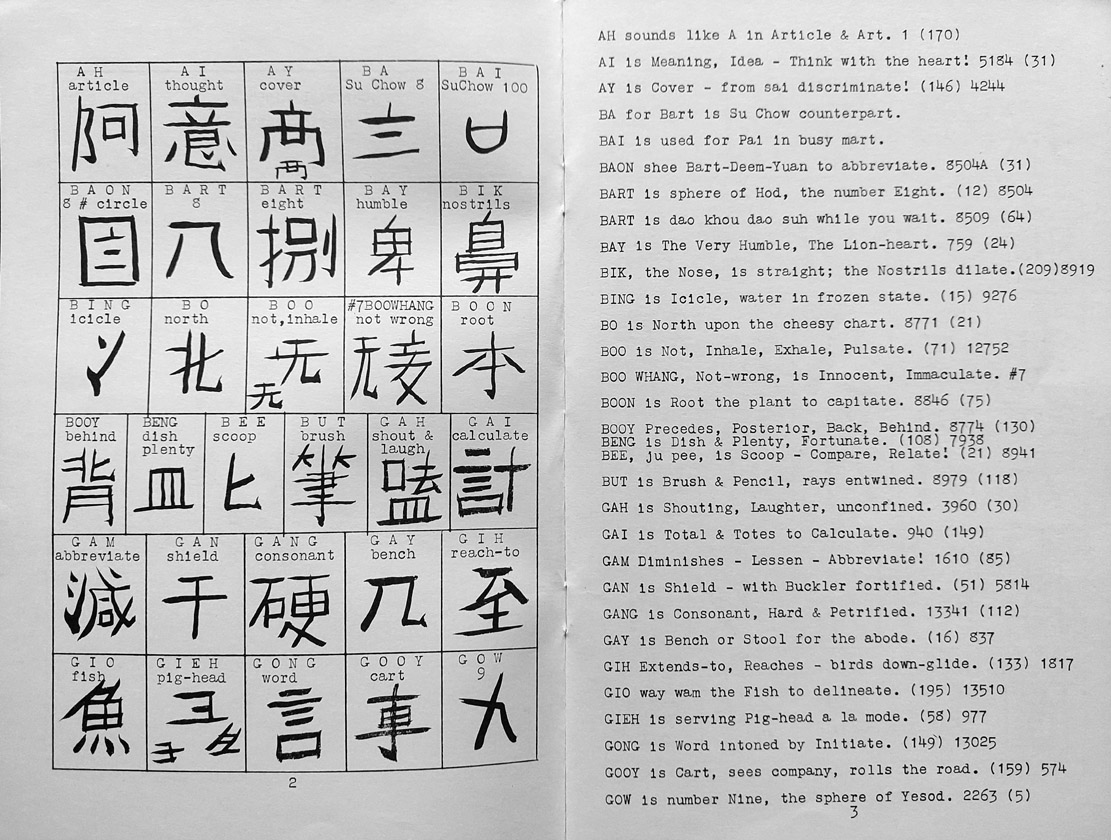 A H A I A Y B A B A I
article thought cover Su Chow 8 SuChow 100
阿 意
B A O N B A R T B A R T B A Y B I K
8 # circle 8 eight humble nostrils
八 捌 卑 鼻
B I N G B O B O O #7BOOWHANG B O O N
icicle north not,inhale not wrong root
冫 北 无 无 无妄 本
BOOY BENG B E E B U T G A H G A I
behind dish scoop brush shout & calculate
plenty laugh
背 皿 匕 筆 嗑 計
G A M G A N G A N G G A Y G I H
abbreviate shield consonant bench reach-to
減 干 硬 几 至
G I O G I E H G O N G G O O Y G O W
fish pig-head word cart 9
魚 彐 言 車 九
2
AH sounds like A in Article & Art. 1 (170)
AI is Meaning, Idea - Think with the heart! 5184 (31)
AY is Cover - from sai discriminate! (146) 4244
BA for Bart is Su Chow counterpart.
BAI is used for Pai in busy mart.
BAON shee Bart-Deem-Yuan to abbreviate. 8504A (31)
BART is sphere of Hod, the number Eight. (12) 8504
BART is dao khou dao suh while you wait. 8509 (64)
BAY is The Very Humble, The Lion-heart. 759 (24)
BIK, the Nose, is straight; the Nostrils dilate.(209)8919
BING is Icicle, water in frozen state. (15) 9276
BO is North upon the cheesy chart. 8771 (21)
BOO is Not, Inhale, Exhale, Pulsate. (71) 12752
BOO WHANG, Not-wrong, is Innocent, Immaculate. #7
BOON is Root the plant to capitate. 8846 (75)
BOOY Precedes, Posterior, Back, Behind. 8774 (130)
BENG is Dish & Plenty, Fortunate. (108) 7938
BEE, ju pee, is Scoop - Compare, Relate! (21) 8941
BUT is Brush & Pencil, rays entwined. 8979 (118)
GAH is Shouting, Laughter, unconfined. 3960 (30)
GAI is Total & Totes to Calculate. 940 (149)
GAM Diminishes - Lessen - Abbreviate! 1610 (85)
GAN is Shield - with Buckler fortified. (51) 5814
GANG is Consonant, Hard & Petrified. 13341 (112)
GAY is Bench or Stool for the abode. (16) 837
GIH Extends-to, Reaches - birds down-glide. (133) 1817
GIO way wam the Fish to delineate. (195) 13510
GIEH is serving Pig-head a la mode. (58) 977
GONG is Word intoned by Initiate. (149) 13025
GOOY is Cart, sees company, rolls the road. (159) 574
GOW is number Nine, the sphere of Yesod. 2263 (5)
3